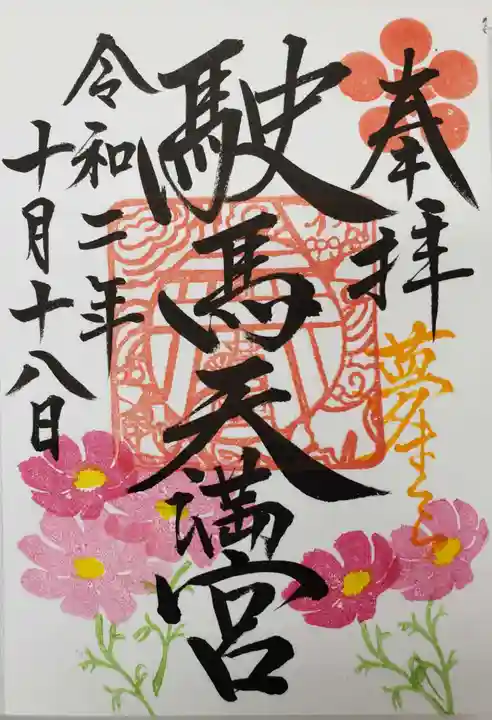 奉拝
駛馬天満宮
令和二年
十月十八日